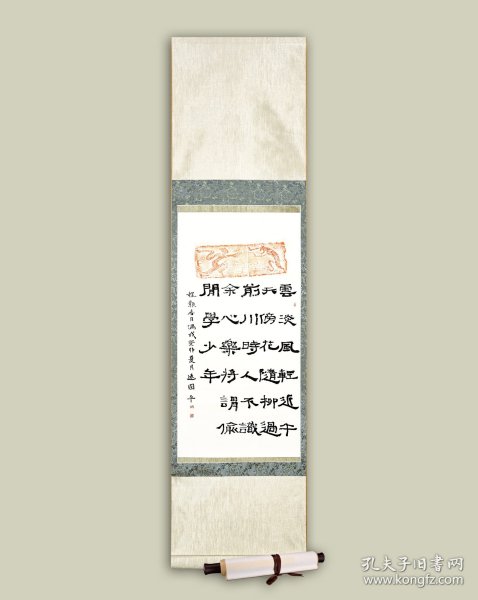 雲淡風輕近午
天傍花隨柳過
前川時人不識
余心樂將謂偷
閒學少年
程顥春日偶成癸卯夏月國平
孔夫子旧书网
www.kongfz.com